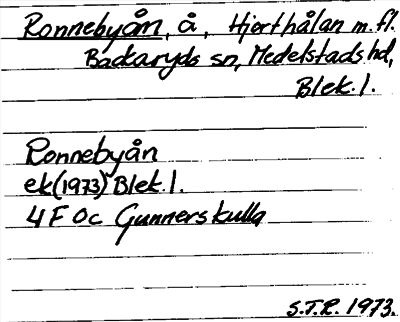 Ronnebyån, å, Hjorthålan m.fl.
Backaryds sn, Medelstads hd,
Blek.l.
Ronnebyån
ek(1973) Blek.l.
4F 0c Gunnerskulla
S.T.R. 1973.